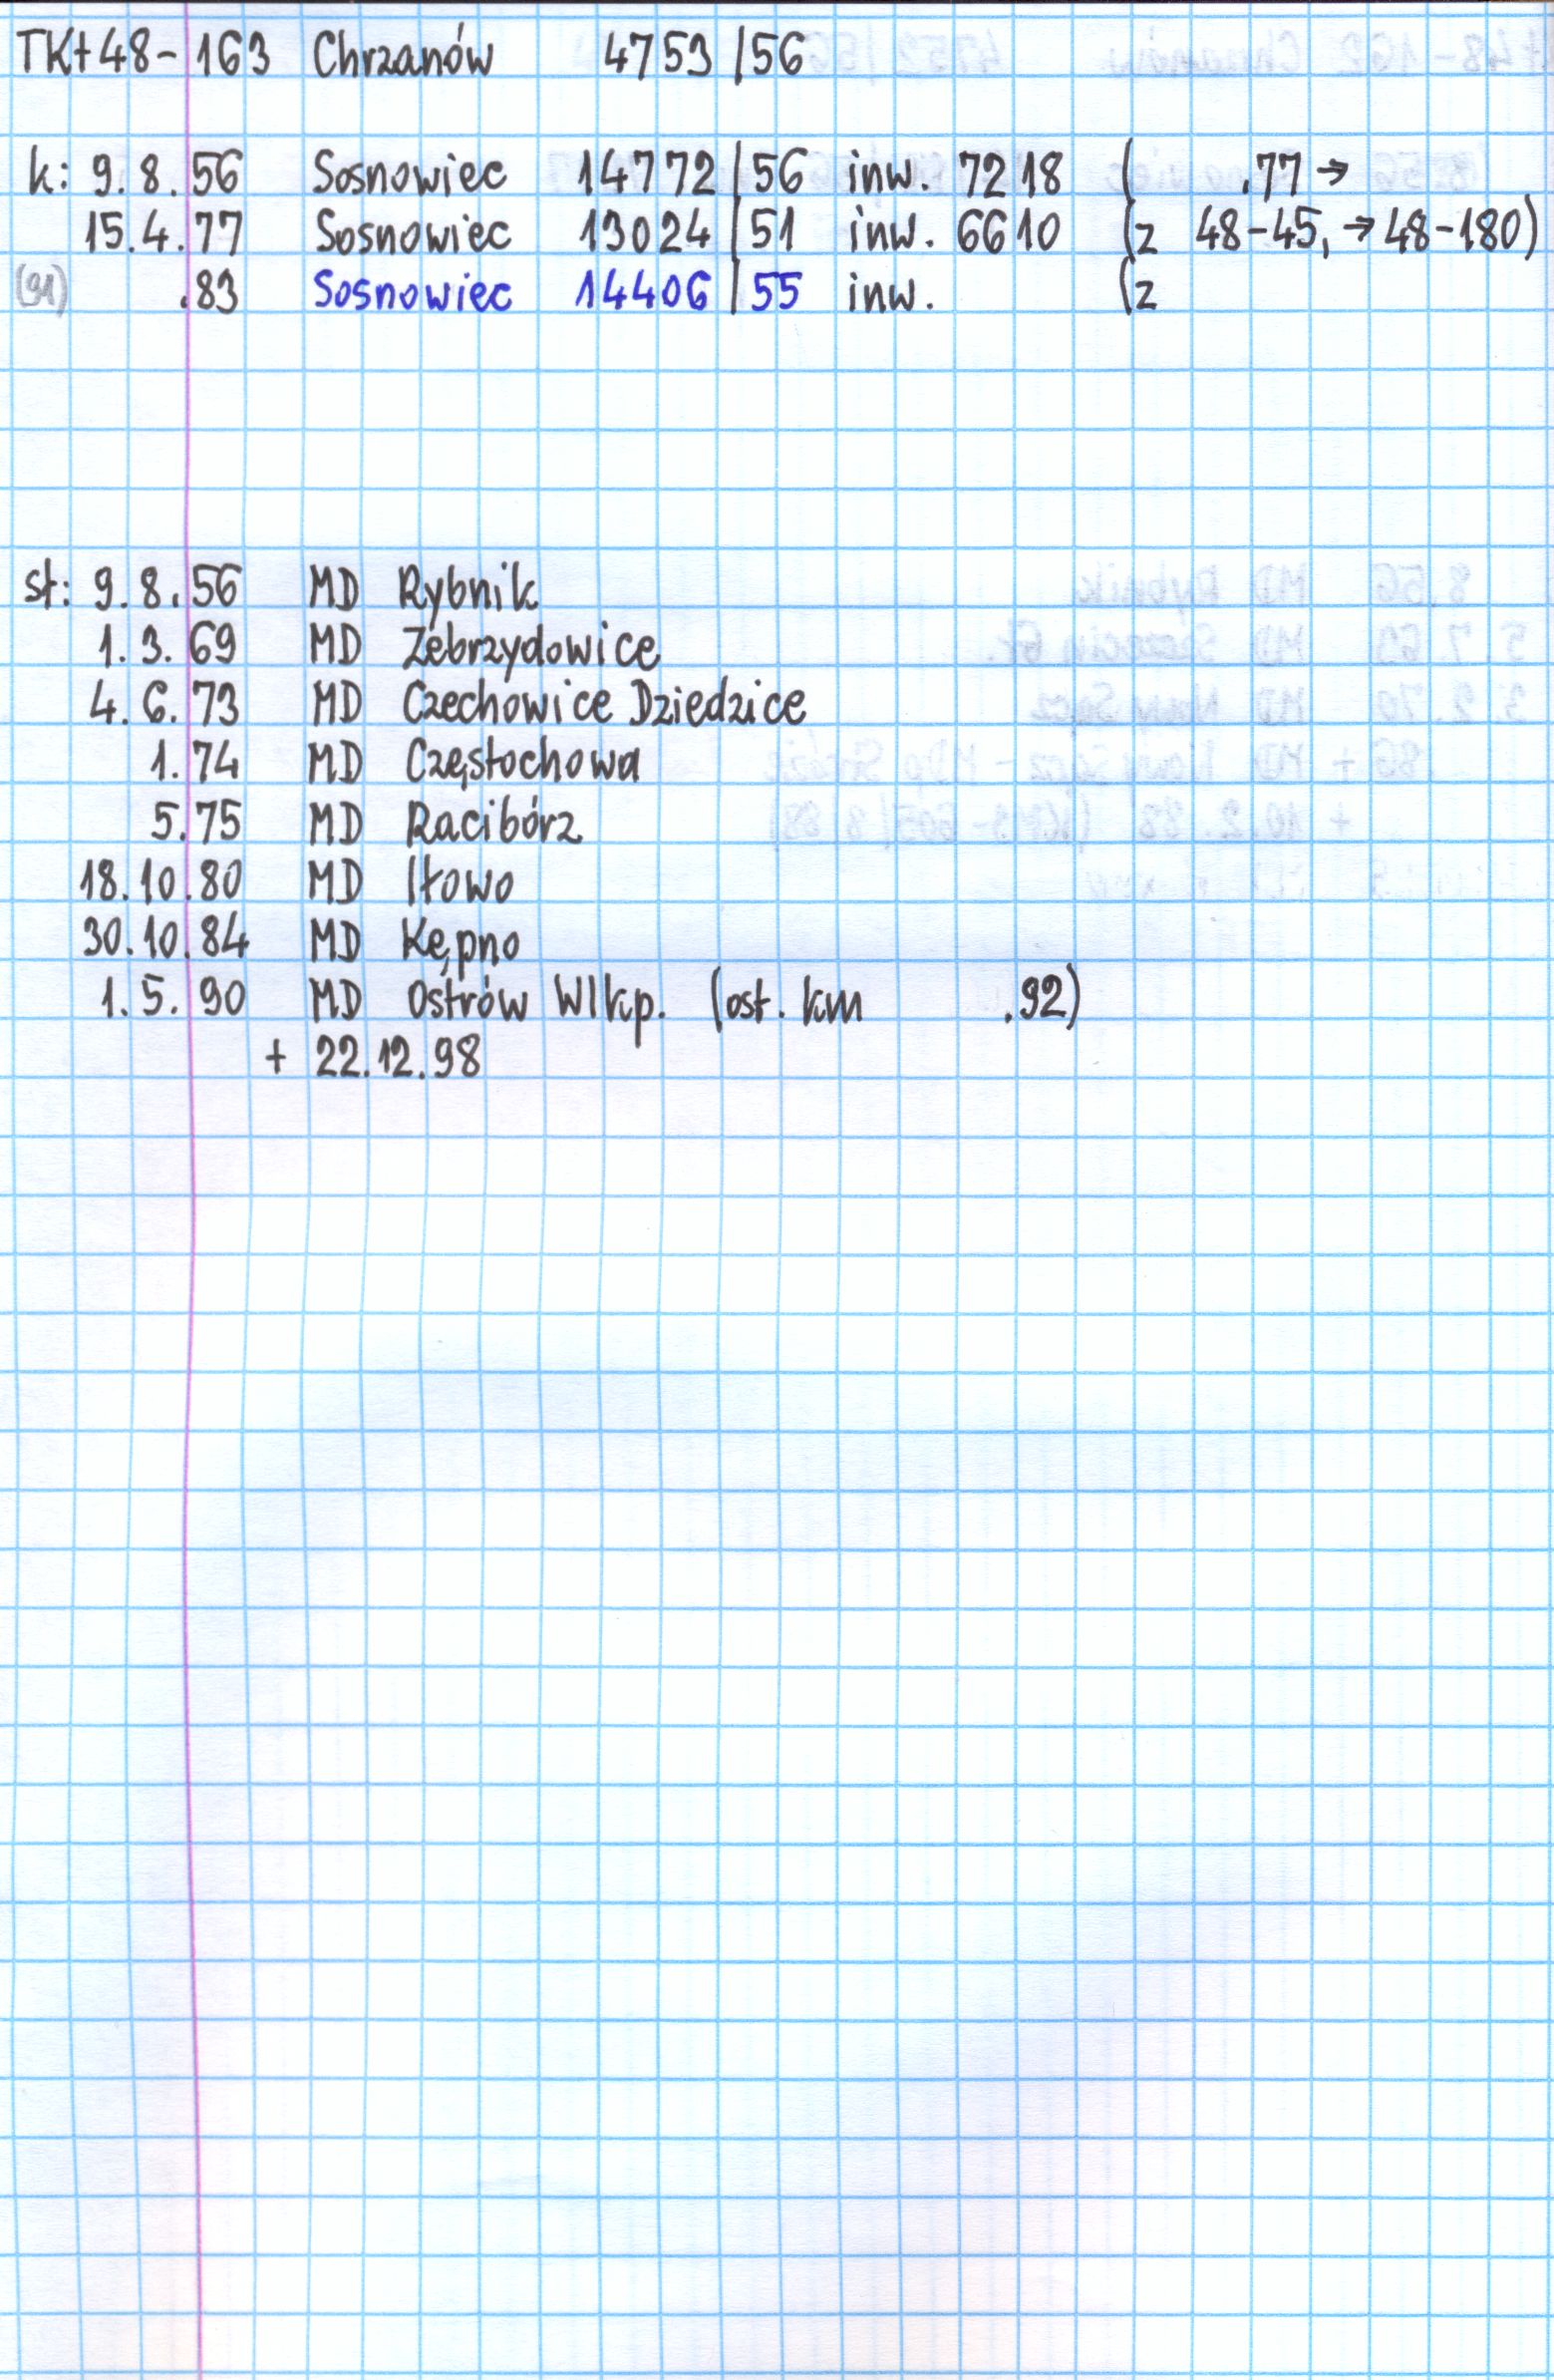 TKt48-163 Chrzanów 4753/56
k: 9.8.56 Sosnowiec 14772/56 inw. 7218 ( .77 →
15.4.77 Sosnowiec 13024/51 inw. 6610 (z 48-45, → 48-180)
(91) .83 Sosnowiec 14406/55 inw. (z
st: 9.8.56 MD Rybnik
1.3.69 MD Zebrzydowice
4.6.73 MD Czechowice Dziedzice
1.74 MD Częstochowa
5.75 MD Racibórz
18.10.80 MD Iłowo
30.10.84 MD Kępno
1.5.90 MD Ostrów Wlkp. (ost. km .92)
+ 22.12.98